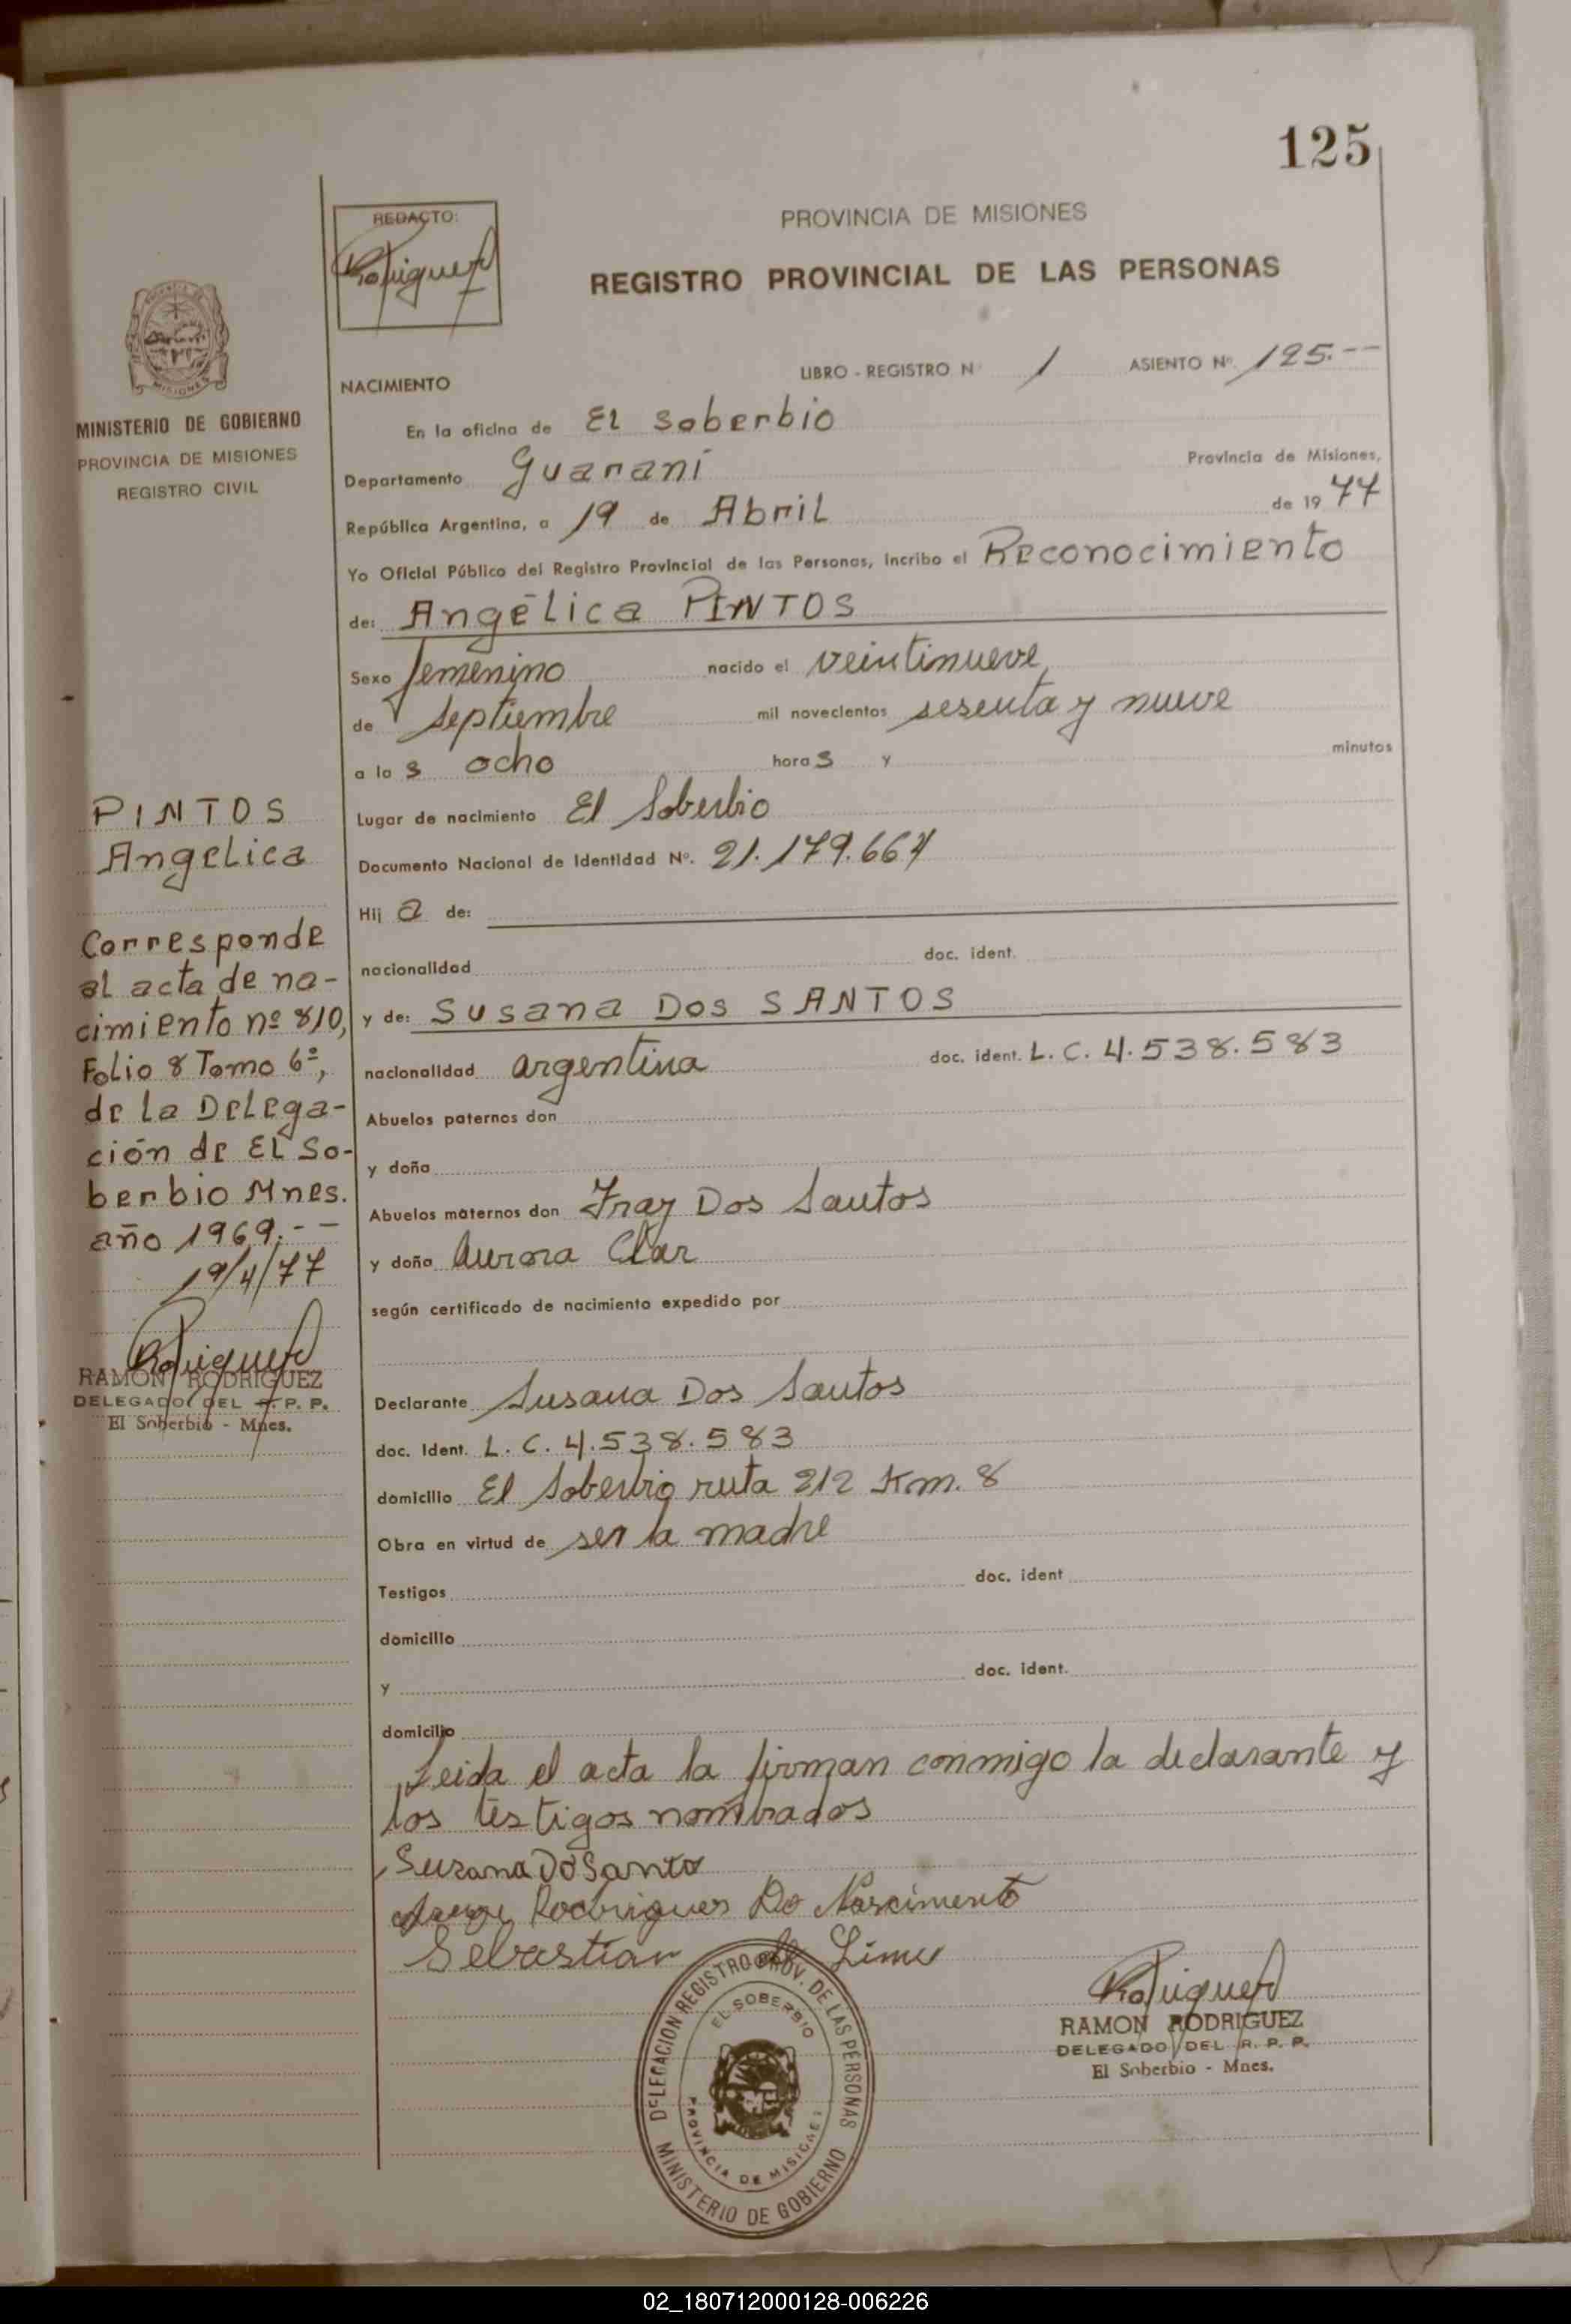 125
REDACTO:
PROVINCIA DE MISIONES
REGISTRO PROVINCIAL DE LAS PERSONAS
MINISTERIO DE GOBIERNO
PROVINCIA DE MISIONES
REGISTRO CIVIL
NACIMIENTO LIBRO - REGISTRO N 1 ASIENTO Nº. 125.--
En la oficina de El Soberbio
Departamento Guaraní Provincia de Misiones,
República Argentina, a 19 de Abril de 1977
Yo Oficial Público del Registro Provincial de las Personas, incribo el Reconocimiento
de: Angélica PINTOS
Sexo femenino nacido el veintinueve,
de septiembre mil novecientos sesenta y nueve
a las ocho horas y minutos
Lugar de nacimiento El Soberbio
Documento Nacional de Identidad Nº. 21.179.664
Hija de:
nacionalidad doc. ident.
y de: Susana Dos SANTOS
nacionalidad argentina doc. ident. L. C. 4.538.583
Abuelos paternos don
y doña
Abuelos maternos don Fray Dos Santos
y doña Aurora Clar
según certificado de nacimiento expedido por
Declarante Susana Dos Santos
doc. Ident. L. C. 4.538.583
domicilio El Soberbio ruta 212 Km. 8
Obra en virtud de ser la madre
Testigos doc. ident
domicilio
y doc. ident.
domicilio
Leida el acta la firman conmigo la declarante y
los testigos nombrados
Suzana Do Santo
Rodrigues Do Nascimento
Sebastian de Lima
PINTOS
Angelica
Corresponde
al acta de na-
cimiento nº 810,
Folio 8 Tomo 6º,
de la Delega-
ción de El So-
berbio Mnes.
año 1969.--
19/4/77
RAMON RODRIGUEZ
DELEGADO DEL R. P. P.
El Soberbio - Mnes.
RAMON RODRIGUEZ
DELEGADO DEL R. P. P.
El Soberbio - Mnes.
DELEGACION REGISTRO PROV. DE LAS PERSONAS
EL SOBERBIO
PROVINCIA DE MISIONES
MINISTERIO DE GOBIERNO
02_180712000128-006226